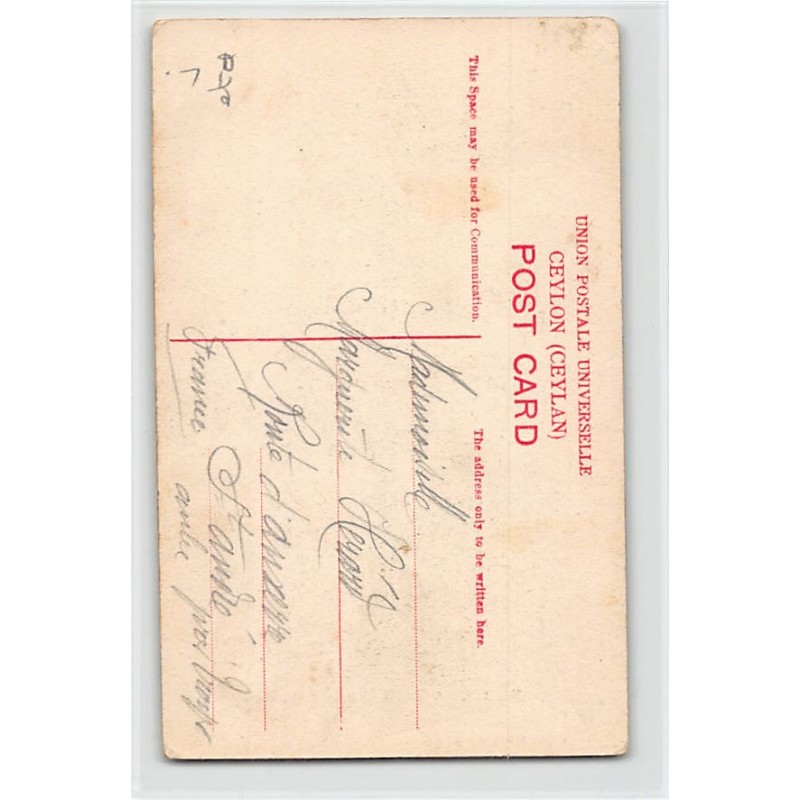 UNION POSTALE UNIVERSELLE
CEYLON (CEYLAN)
POST CARD
This Space may be used for Communication.
The address only to be written here.
Mademoiselle
Marguerite
Route d'auxerre
St andré
aube
France